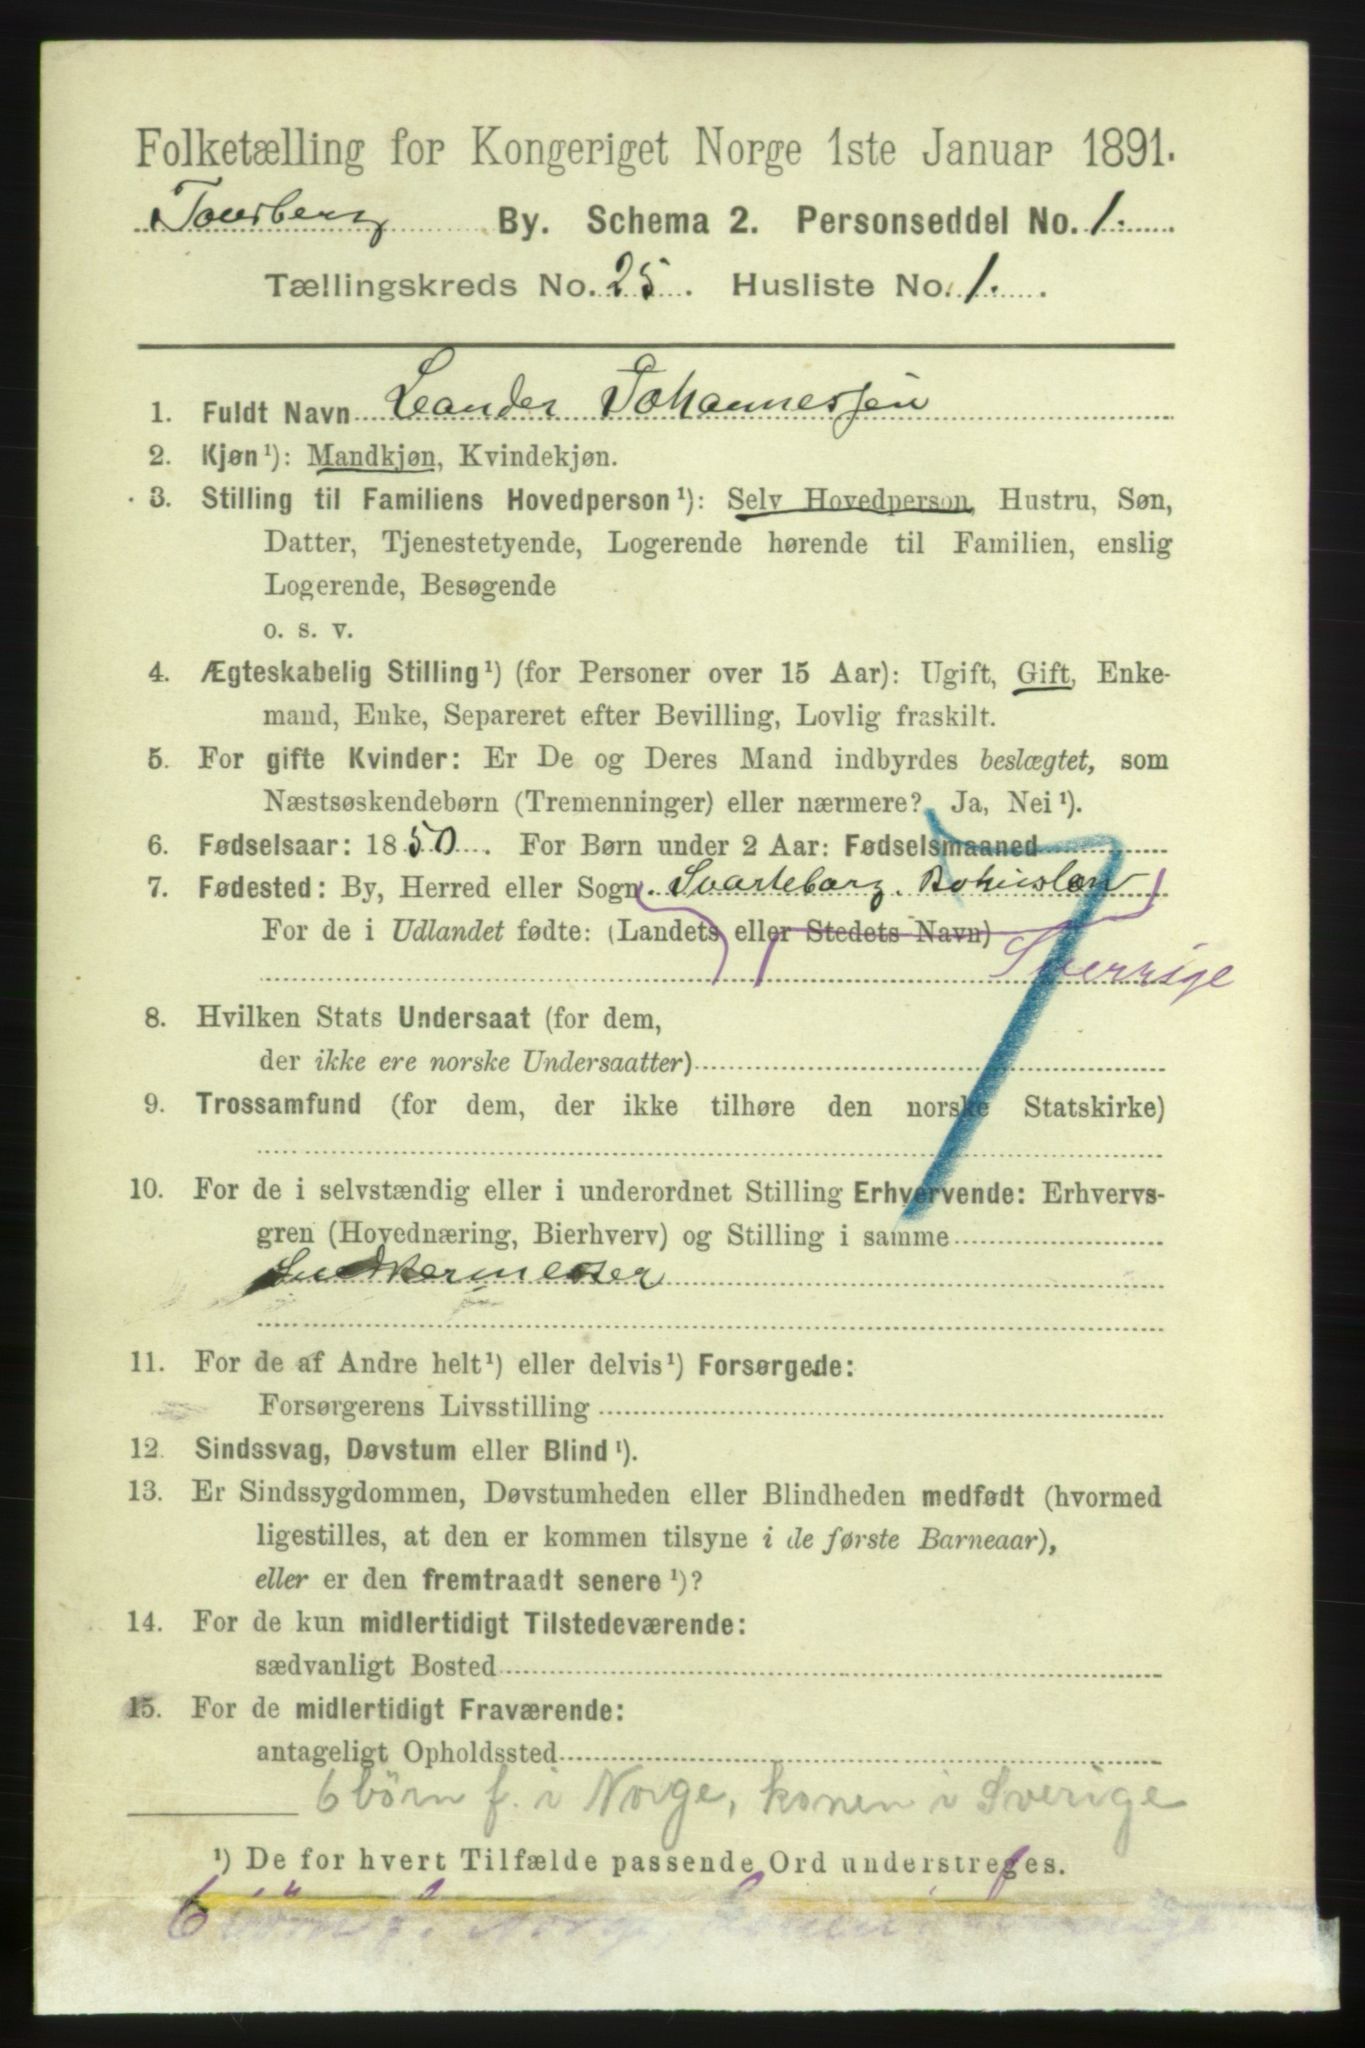 Folketælling for Kongeriget Norge 1ste Januar 1891.
Tønsberg By. Schema 2. Personseddel No. 1.
Tællingskreds No. 25. Husliste No. 1.
1. Fuldt Navn Leander Johannessen
2. Kjøn¹): Mandkjøn, Kvindekjøn.
3. Stilling til Familiens Hovedperson¹): Selv Hovedperson, Hustru, Søn,
Datter, Tjenestetyende, Logerende hørende til Familien, enslig
Logerende, Besøgende
o. s. v.
4. Ægteskabelig Stilling¹) (for Personer over 15 Aar): Ugift, Gift, Enke-
mand, Enke, Separeret efter Bevilling, Lovlig fraskilt.
5. For gifte Kvinder: Er De og Deres Mand indbyrdes beslægtet, som
Næstsøskendebørn (Tremenninger) eller nærmere? Ja, Nei¹).
6. Fødselsaar: 1850. For Børn under 2 Aar: Fødselsmaaned
7. Fødested: By, Herred eller Sogn Svarteborg. Bohuslen
For de i Udlandet fødte: (Landets eller Stedets Navn)
Sverrige
8. Hvilken Stats Undersaat (for dem,
der ikke ere norske Undersaatter)
9. Trossamfund (for dem, der ikke tilhøre den norske Statskirke)
10. For de i selvstændig eller i underordnet Stilling Erhvervende: Erhvervs-
gren (Hovednæring, Bierhverv) og Stilling i samme
11. For de af Andre helt¹) eller delvis¹) Forsørgede:
Forsørgerens Livsstilling
12. Sindssvag, Døvstum eller Blind¹).
13. Er Sindssygdommen, Døvstumheden eller Blindheden medfødt (hvormed
ligestilles, at den er kommen tilsyne i de første Barneaar),
eller er den fremtraadt senere¹)?
14. For de kun midlertidigt Tilstedeværende:
sædvanligt Bosted
15. For de midlertidigt Fraværende:
antageligt Opholdssted
6 börn f. i Norge, konen i Sverige
¹) De for hvert Tilfælde passende Ord understreges.
6 börn f. i Norge, konen i Sverrige